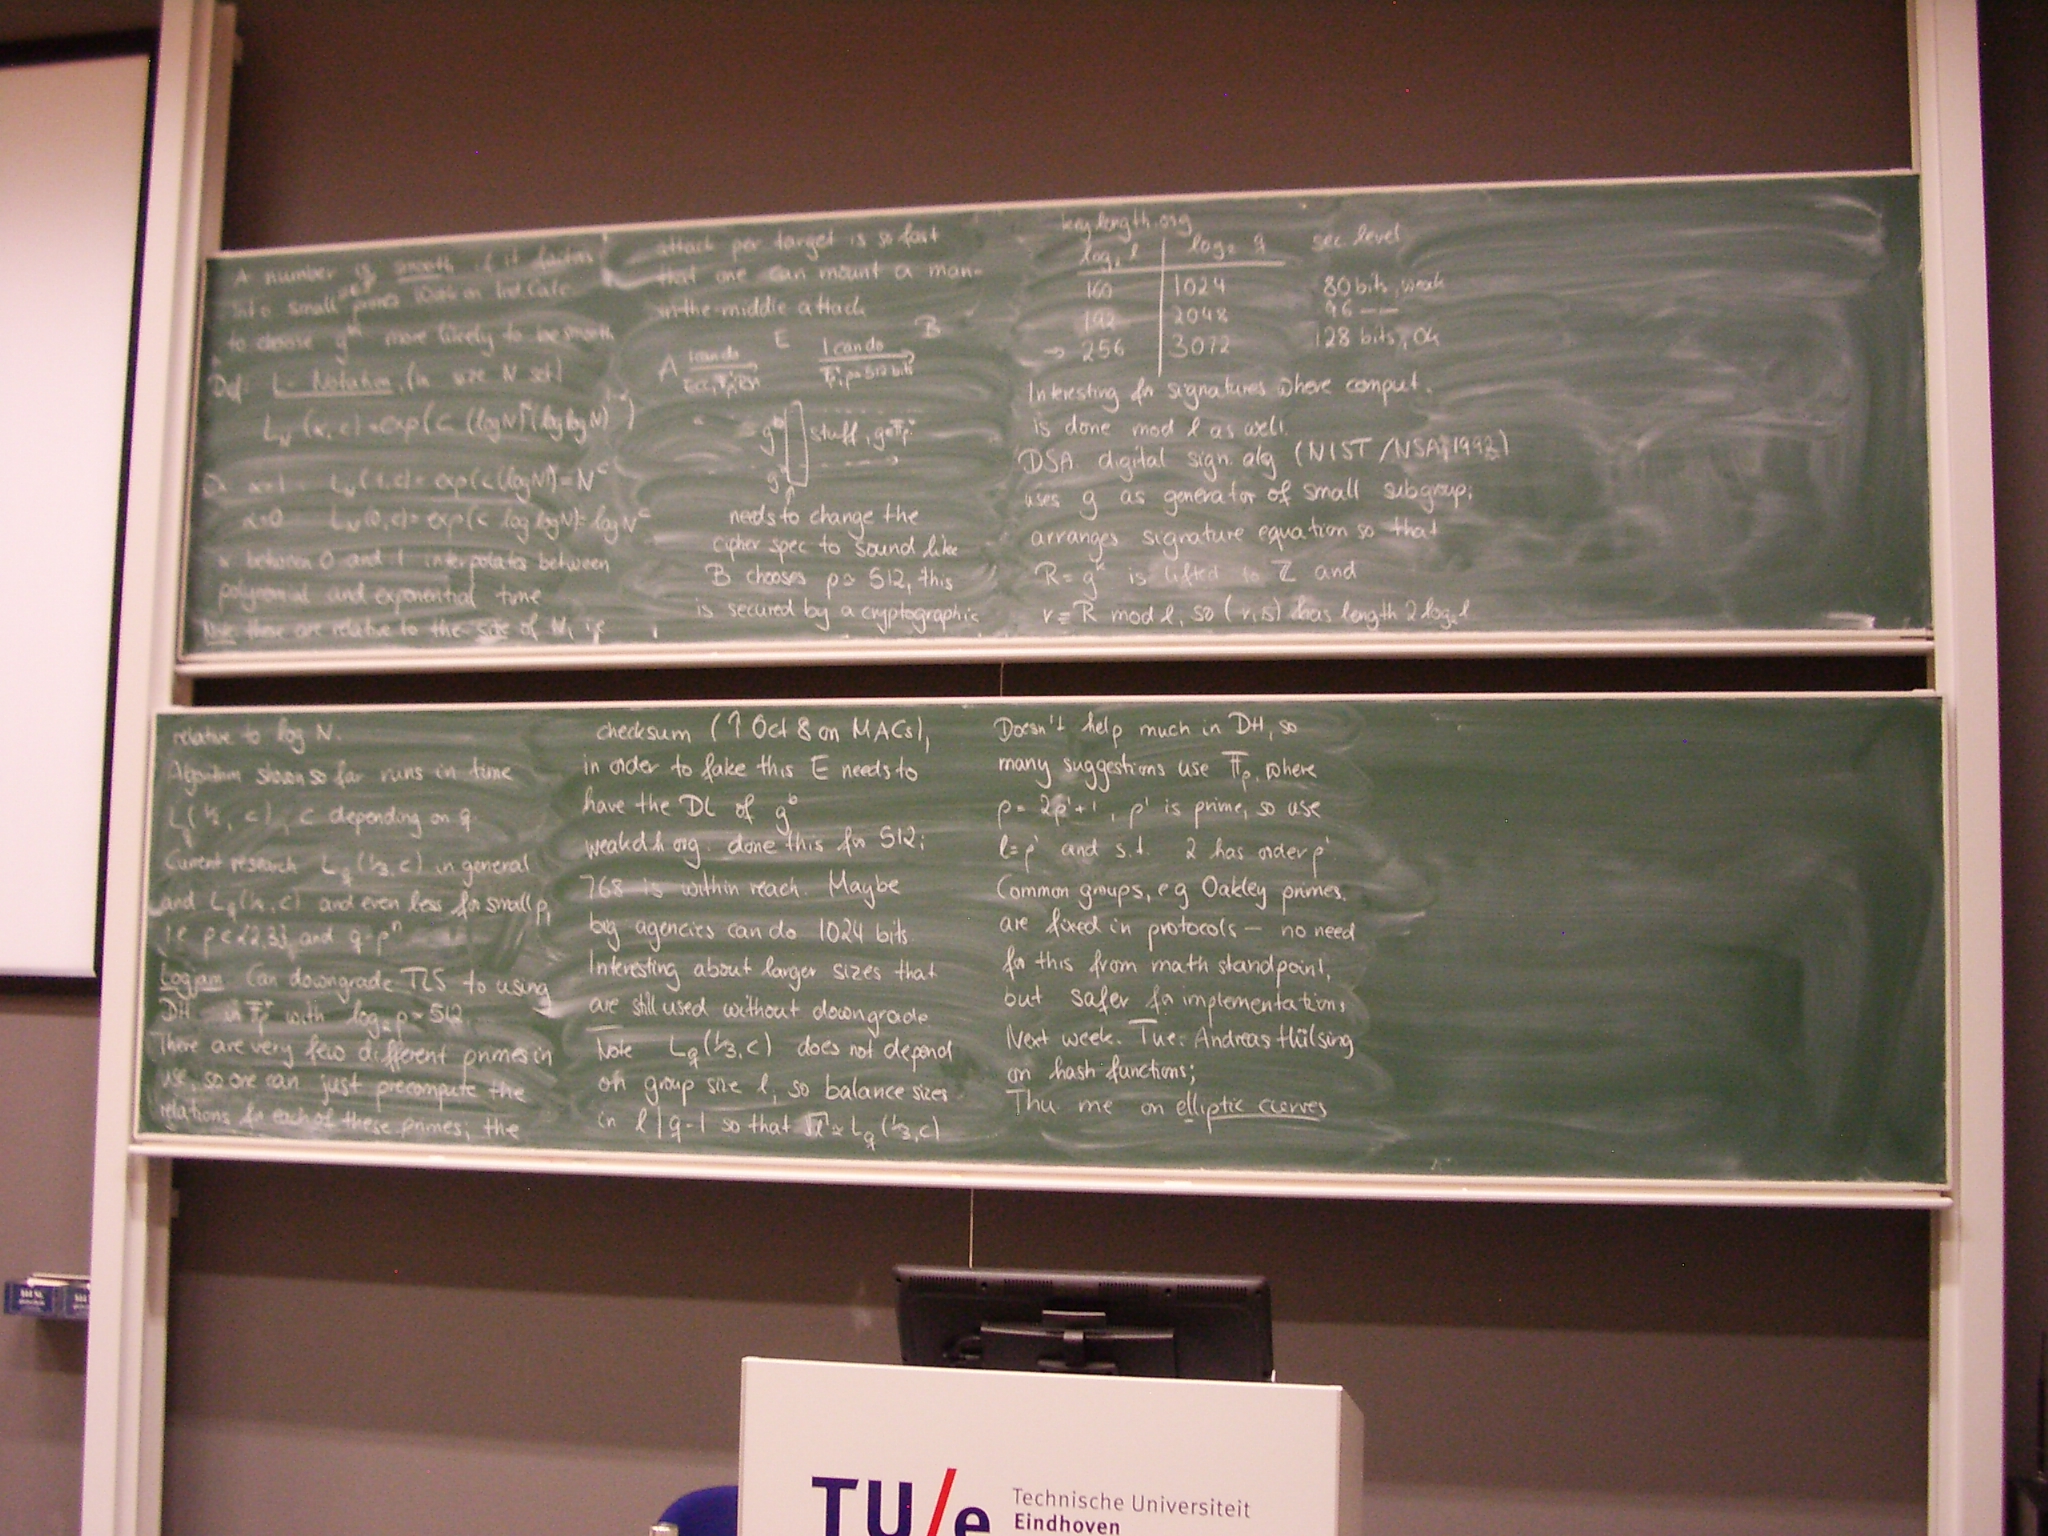 A number is smooth if it factors
into small primes. Work on Ind Calc
to choose g more likely to be smooth
Def: L-Notation, (in size N set)
L_N(α,c) = exp(c (log N)^α (log log N)^1-α)
α=1 L_N(1,c) = exp(c(log N)) = N^c
α=0 L_N(0,c) = exp(c log log N) = log N^c
α between 0 and 1 interpolates between
polynomial and exponential time
Note these are relative to the size of N, i.e.
attack per target is so fast
that one can mount a man-
in-the-middle attack
A I can do E I can do B
ECC, F_p*, RSA F_p*, p≈512 bits
g^b stuff, g∈F_p*
g^b
needs to change the
cipher spec to sound like
B chooses p≈512, this
is secured by a cryptographic
keylength.org
log₂ l log₂ q sec level
160 1024 80 bits, weak
192 2048 96 —
→ 256 3072 128 bits, ok
Interesting for signatures where comput.
is done mod l as well.
DSA digital sign. alg (NIST/NSA, 1992)
uses g as generator of small subgroup;
arranges signature equation so that
R = g^k is lifted to Z and
r ≡ R mod l, so (r,s) has length 2 log₂ l
relative to log N.
Algorithm shown so far runs in time
L_q(1/2, c), c depending on q.
Current research L_q(1/3, c) in general
and L_q(1/4, c) and even less for small p,
i.e. p∈{2,3}, and q=p^n
Logjam Can downgrade TLS to using
DH in F_p* with log₂ p ≈ 512
There are very few different primes in
use, so one can just precompute the
relations for each of these primes; the
checksum (↑ Oct 8 on MACs),
in order to fake this E needs to
have the DL of g^b
weakdh.org. done this for 512;
768 is within reach. Maybe
big agencies can do 1024 bits.
Interesting about larger sizes that
are still used without downgrade
Note L_q(1/3, c) does not depend
on group size l, so balance sizes
in l | q-1 so that √l ≈ L_q(1/3, c)
Doesn't help much in DH, so
many suggestions use F_p, where
p = 2p'+1, p' is prime, so use
l=p' and s.t. 2 has order p'
Common groups, eg Oakley primes.
are fixed in protocols – no need
for this from math standpoint,
but safer for implementations
Next week. Tue: Andreas Hülsing
on hash functions;
Thu me on elliptic curves
TU/e Technische Universiteit
Eindhoven